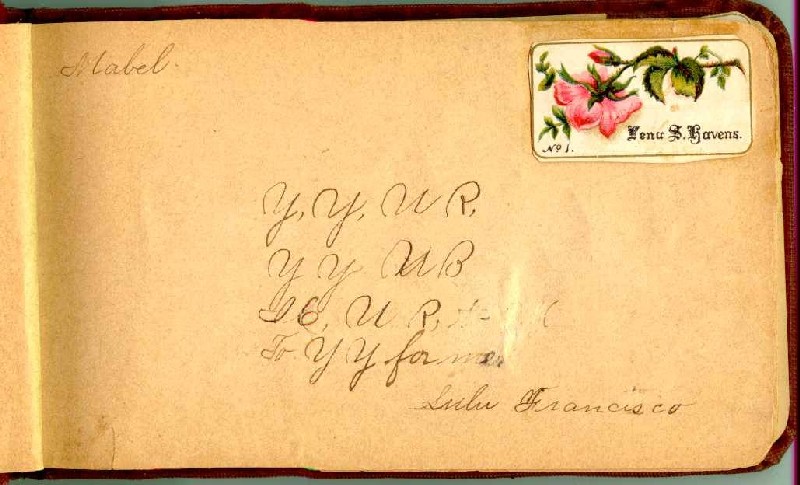 Mabel.
Lena S. Havens.
No 1.
Y, Y, U R,
Y Y U B
I C, U R,
To Y Y for me
Lulu Francisco